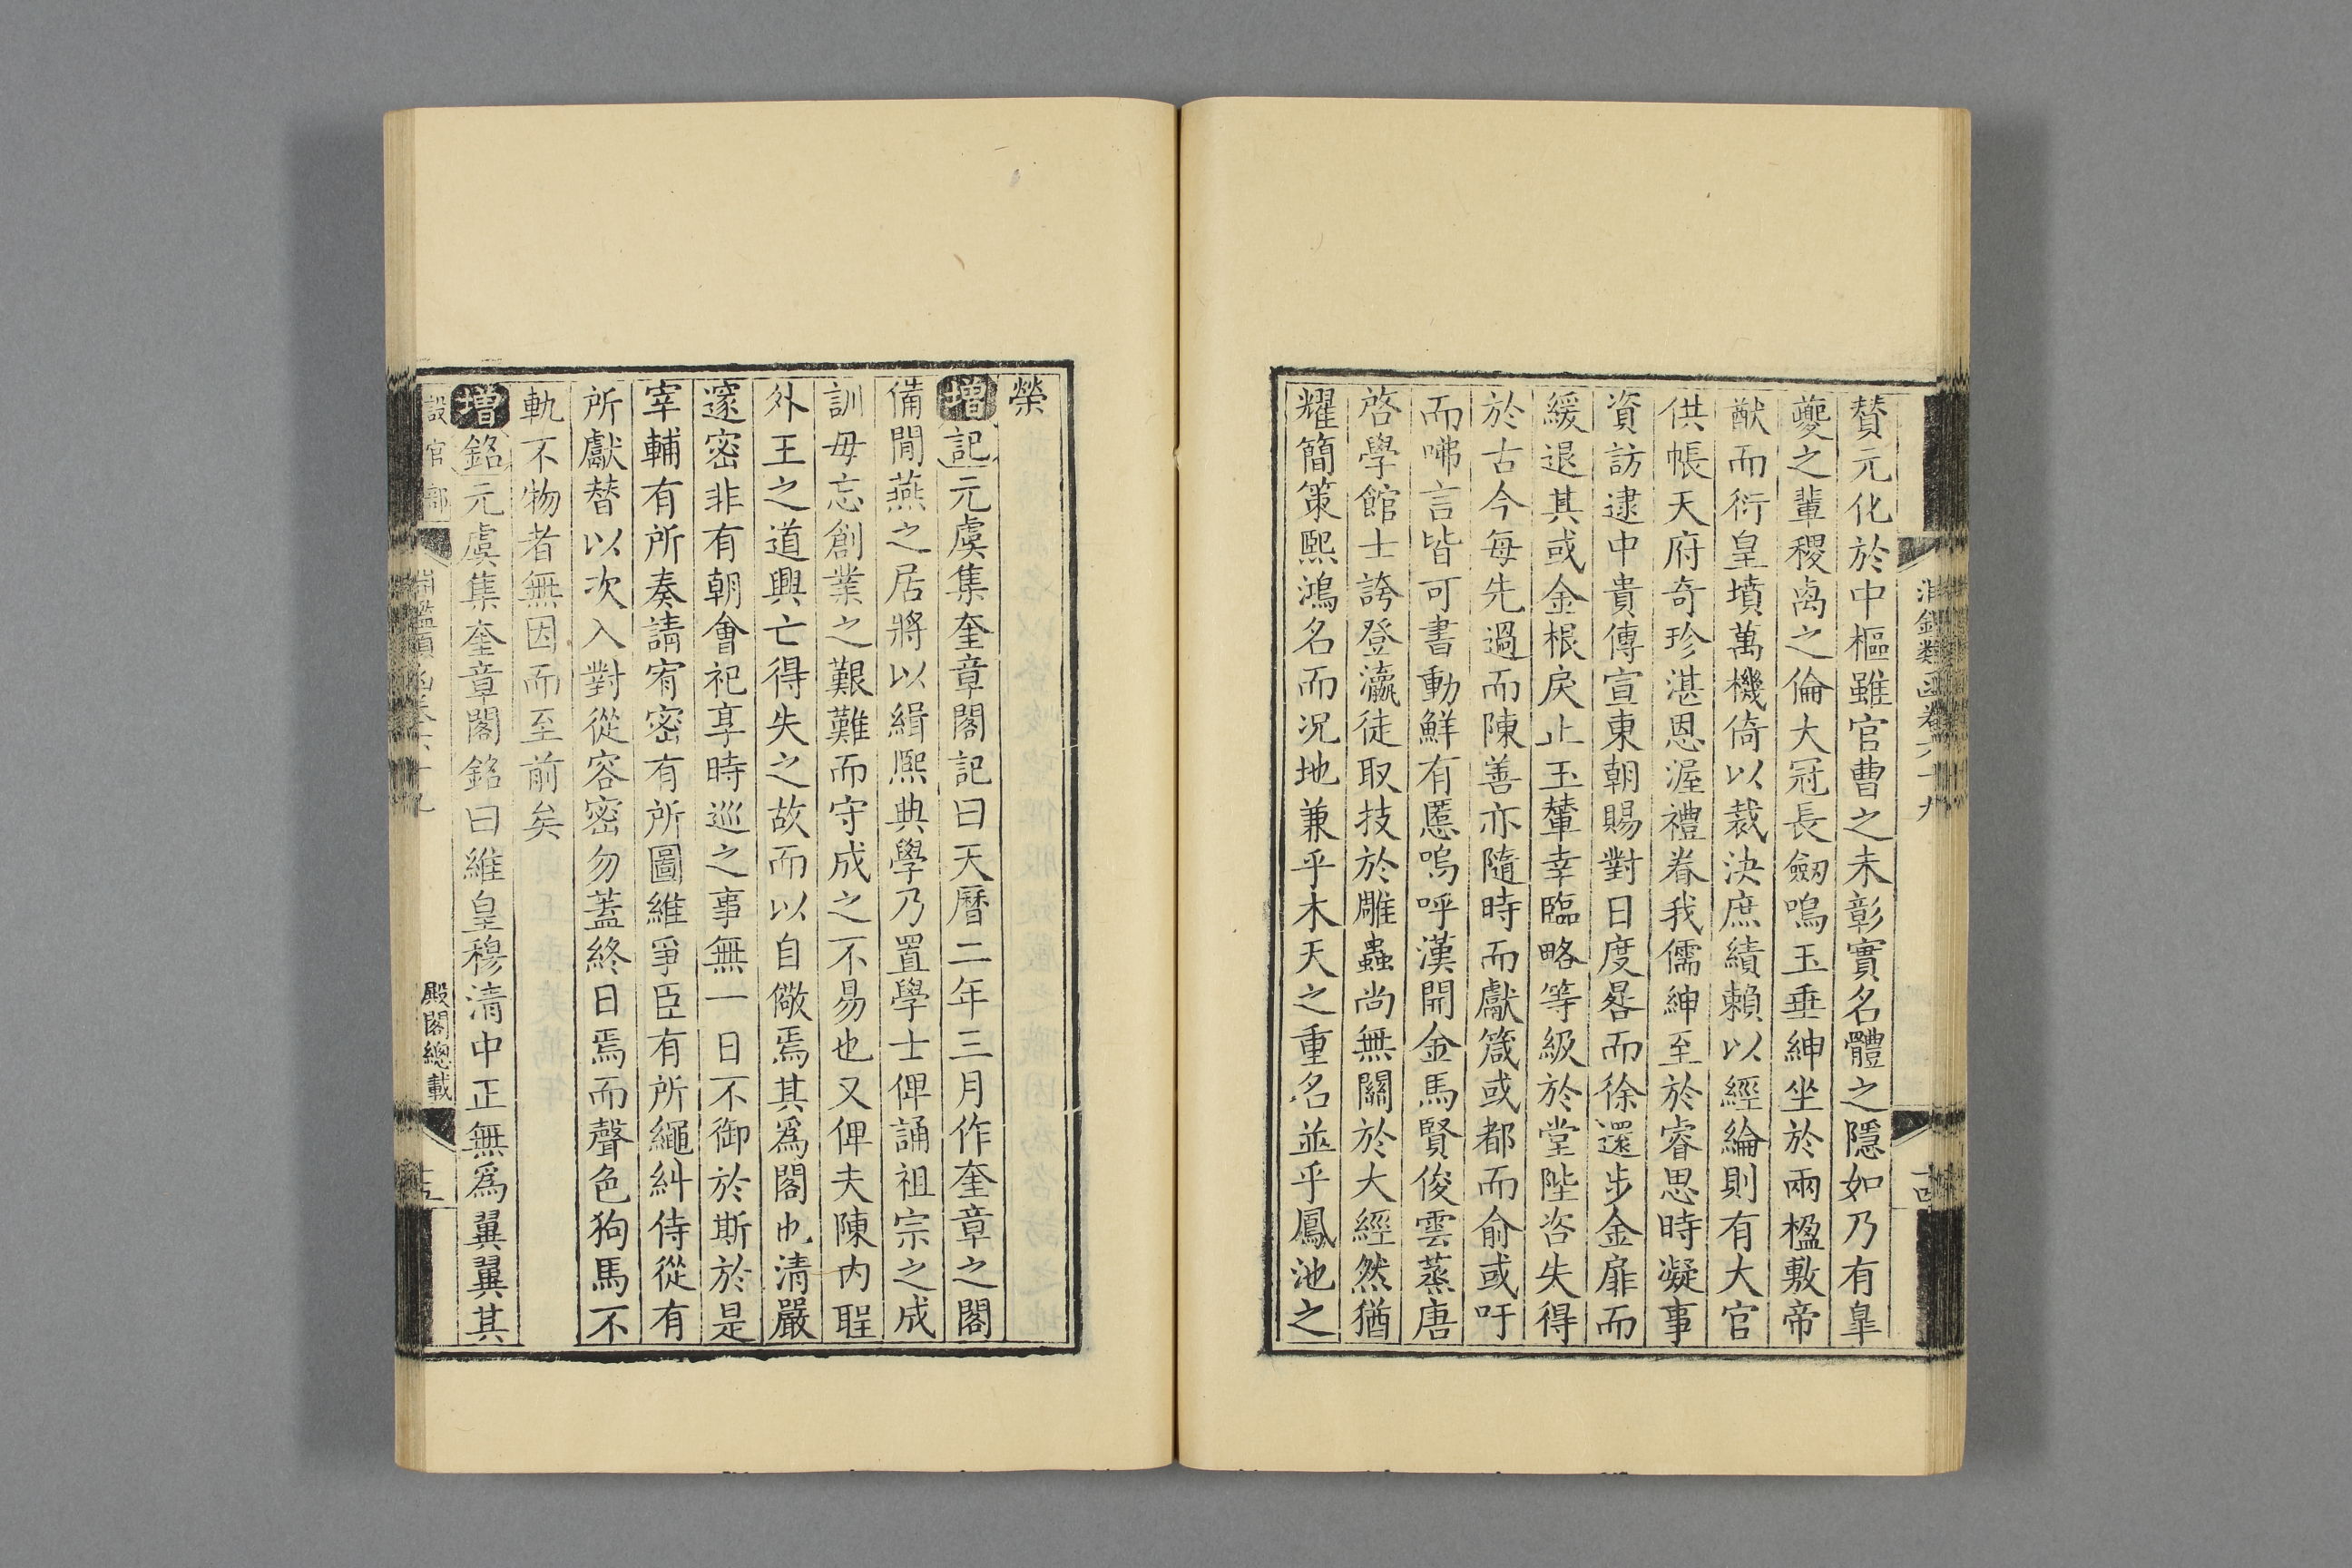 淵鑑類函卷六十九
贊元化於中樞雖官曹之未彰實名體之隱如乃有臯
夔之輩稷卨之倫大冠長劒嗚玉垂紳坐於兩楹敷帝
猷而衍皇墳萬機倚以裁決庶績賴以經綸則有大官
供帳天府奇珍湛恩渥禮眷我儒紳至於睿思時凝事
資訪逮中貴傳宣東朝賜對日度晷而徐還步金扉而
緩退其或金根戾止玉輦幸臨略等級於堂陛咨失得
於古今每先過而陳善亦隨時而獻箴或都而俞或吁
而咈言皆可書動鮮有慝嗚呼漢開金馬賢俊雲蒸唐
啓學館士誇登瀛徒取技於雕蟲尚無關於大經然猶
耀簡策熙鴻名而况地兼乎木天之重名並乎鳳池之
榮
增記元虞集奎章閣記曰天曆二年三月作奎章之閣
備閒燕之居將以緝熙典學乃置學士俾誦祖宗之成
訓毋忘創業之艱難而守成之不易也又俾夫陳内聖
外王之道興亡得失之故而以自儆焉其爲閣也清嚴
邃密非有朝會祀享時巡之事無一日不御於斯於是
宰輔有所奏請宥密有所圖維爭臣有所繩糾侍從有
所獻替以次入對從容密勿蓋終日焉而聲色狗馬不
軌不物者無因而至前矣
增銘元虞集奎章閣銘曰維皇穆清中正無爲翼翼其
設官部 淵鑑類函卷六十九 殿閣總載